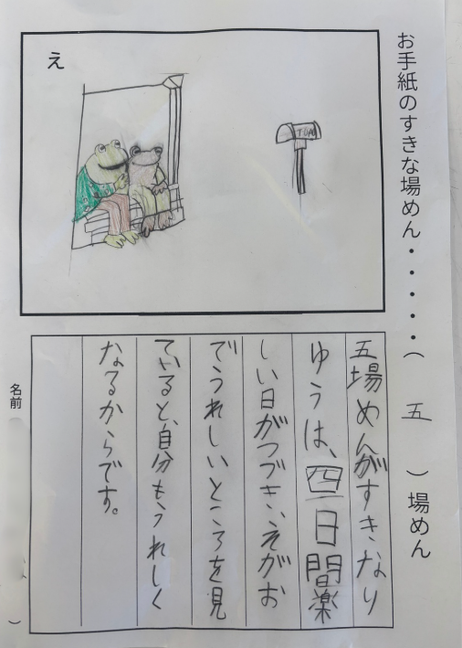 お手紙のすきな場めん・・・・・（　五　）場めん
え
TOAD
五場めんがすきなり
ゆうは、四日間楽
しい日がつづき、えがお
でうれしいところを見
ていると、自分もうれしく
なるからです。
名前
）